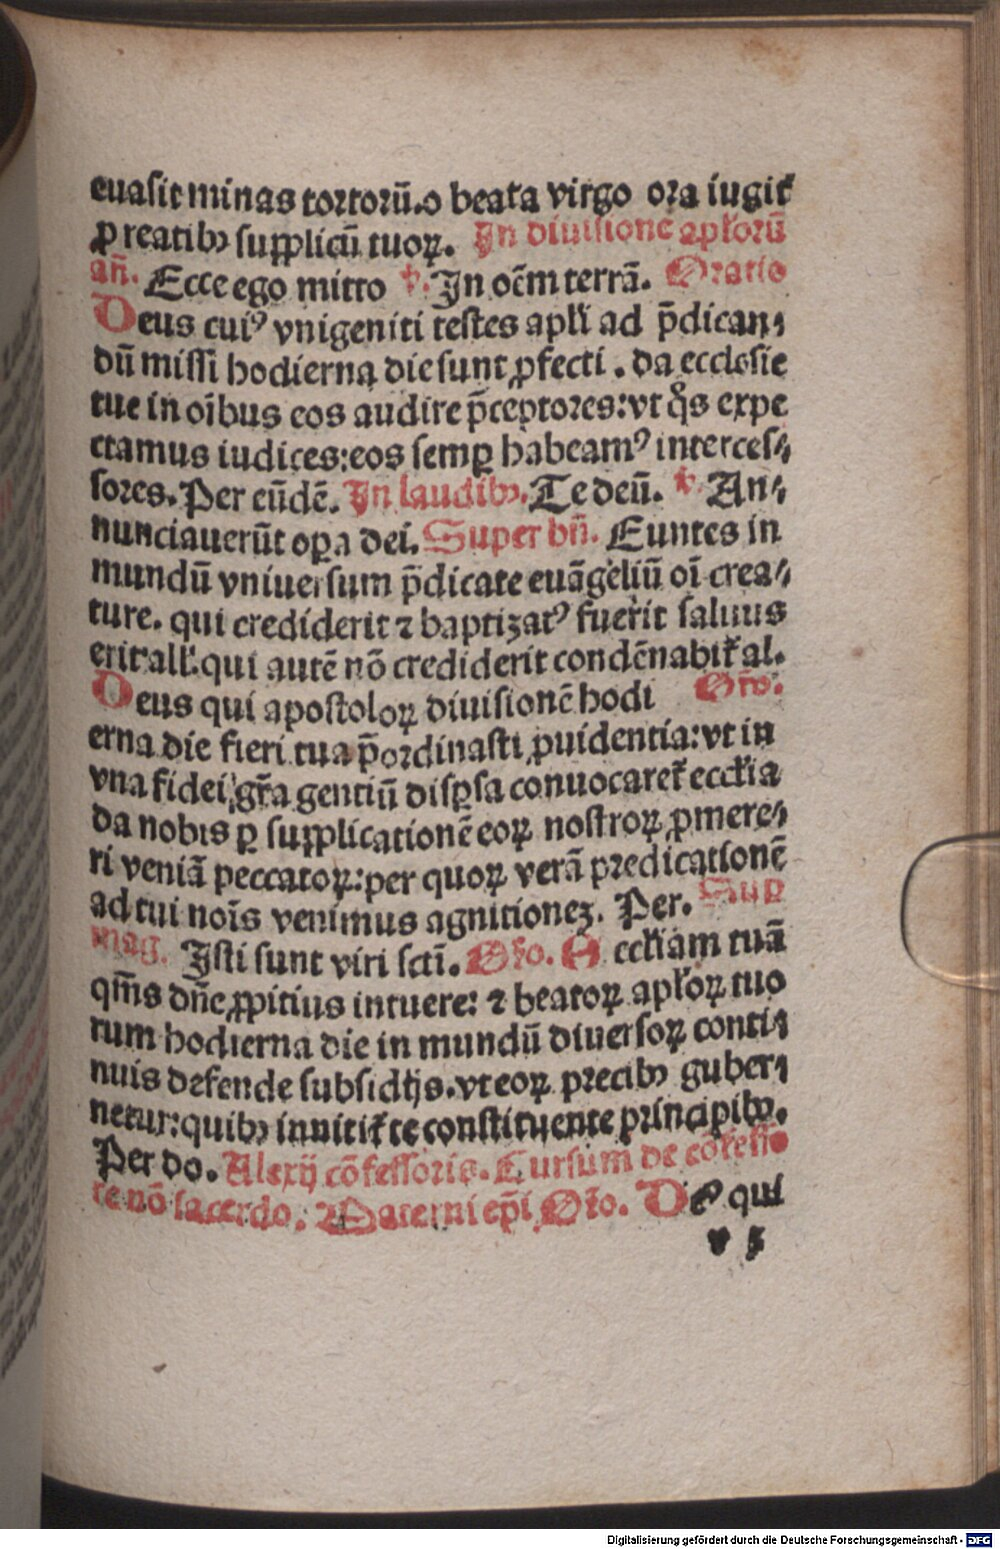 euasit minas tortorū.o beata virgo ora iugit̉
ꝓ reatibꝰ supplicū tuoꝝ. In diuisione apl̉orū
añ. Ecce ego mitto ℣. In oēm terrā. Oratio
Deus cuiꝰ vnigeniti testes apl̉i ad p̄dican⸗
dū missi hodierna die sunt ꝓfecti. da ecclesie
tue in oībus eos audire p̄ceptores:vt q̊s expe
ctamus iudices:eos semꝑ habeamꝰ interces⸗
sores. Per eūdē. In laudibꝫ. Te deū. ℣. An⸗
nunciauerūt oꝑa dei. Super bñ. Euntes in
mundū vniuersum p̄dicate euāgeliū oī crea⸗
ture. qui crediderit ⁊ baptizatꝰ fuerit saluus
erit all̉. qui autē nō crediderit condēnabit̉ al.
Deus qui apostoloꝝ diuisionē hodi Or̄o.
erna die fieri tua p̄ordinasti ꝓuidentia:vt in
vna fidei gr̄a gentiū disꝑsa conuocaret̉ eccl̉ia
da nobis ꝑ supplicationē eoꝝ nostroꝝ ꝓmere⸗
ri veniā peccatoꝝ:per quoꝝ verā predicationē
ad tui noīs venimus agnitioneꝫ. Per. Suꝑ
mag. Isti sunt viri sctī. Or̄o. A eccl̉iam tuā
qm̄s dn̄e ꝓpitius intuere: ⁊ beatoꝝ apl̉oꝝ tuo
rum hodierna die in mundū diuersoꝝ conti⸗
nuis defende subsidijs.vt eoꝝ precibꝫ guber⸗
netur:quibꝫ innitit̉ te constituente principibꝫ.
Per do. Alexij cōfessoris. Cursum de cōfesso
re nō sacerdo. Materni epī Or̄o. Deꝰ qui
v 5
Digitalisierung gefördert durch die Deutsche Forschungsgemeinschaft - DFG